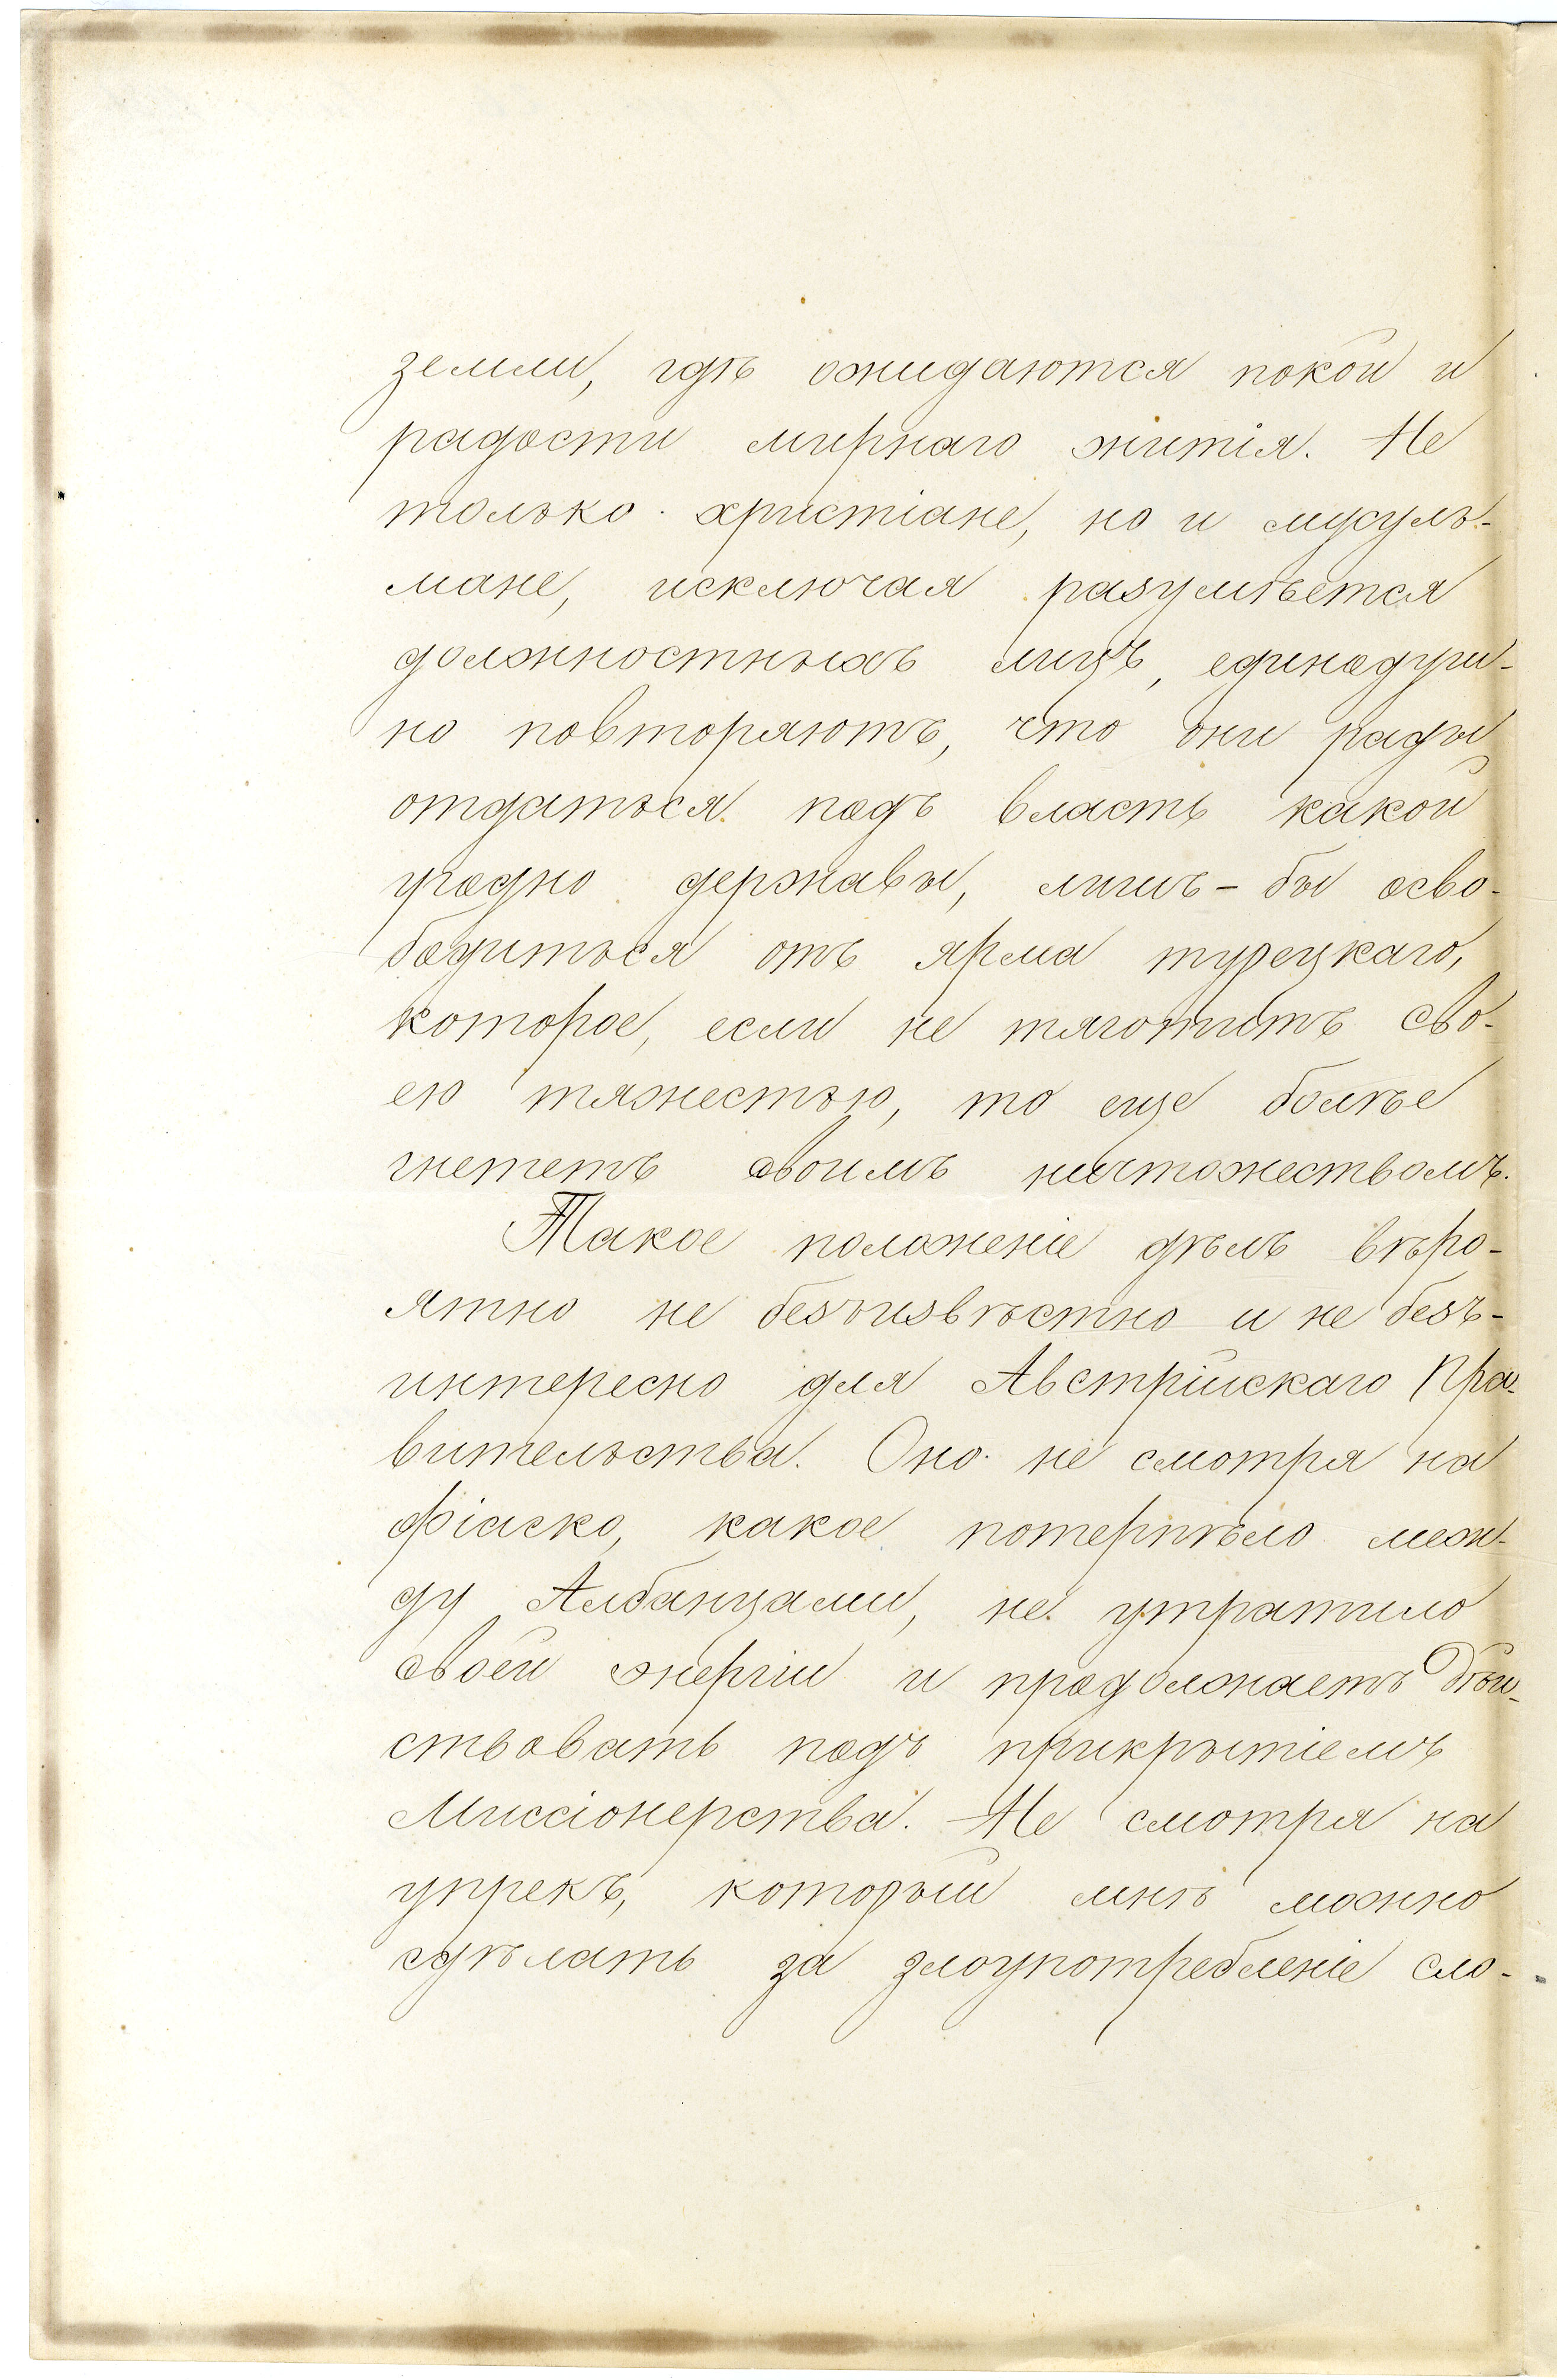 земли, гдѣ ожидаются покой и
радости мирнаго житія. Не
только христіане, но и мусуль-
мане, исключая разумѣется
должностныхъ лицъ, единодуш-
но повторяютъ, что они рады
отдаться подъ власть какой
угодно державы, лишь-бы осво-
бодиться отъ ярма турецкаго,
которое, если не тяготитъ сво-
ею тяжестью, то еще болѣе
гнететъ своимъ ничтожествомъ.
Такое положеніе дѣлъ вѣро-
ятно не безъизвѣстно и не безъ-
интересно для Австрійскаго Пра-
вительства. Оно не смотря на
фіаско, какое потерпѣло меж-
ду Албанцами, не утратило
своей энергіи и продолжаетъ дѣй-
ствовать подъ прикрытіемъ
Миссіонерства. Не смотря на
упрекъ, который мнѣ можно
сдѣлать за злоупотребленіе сло-